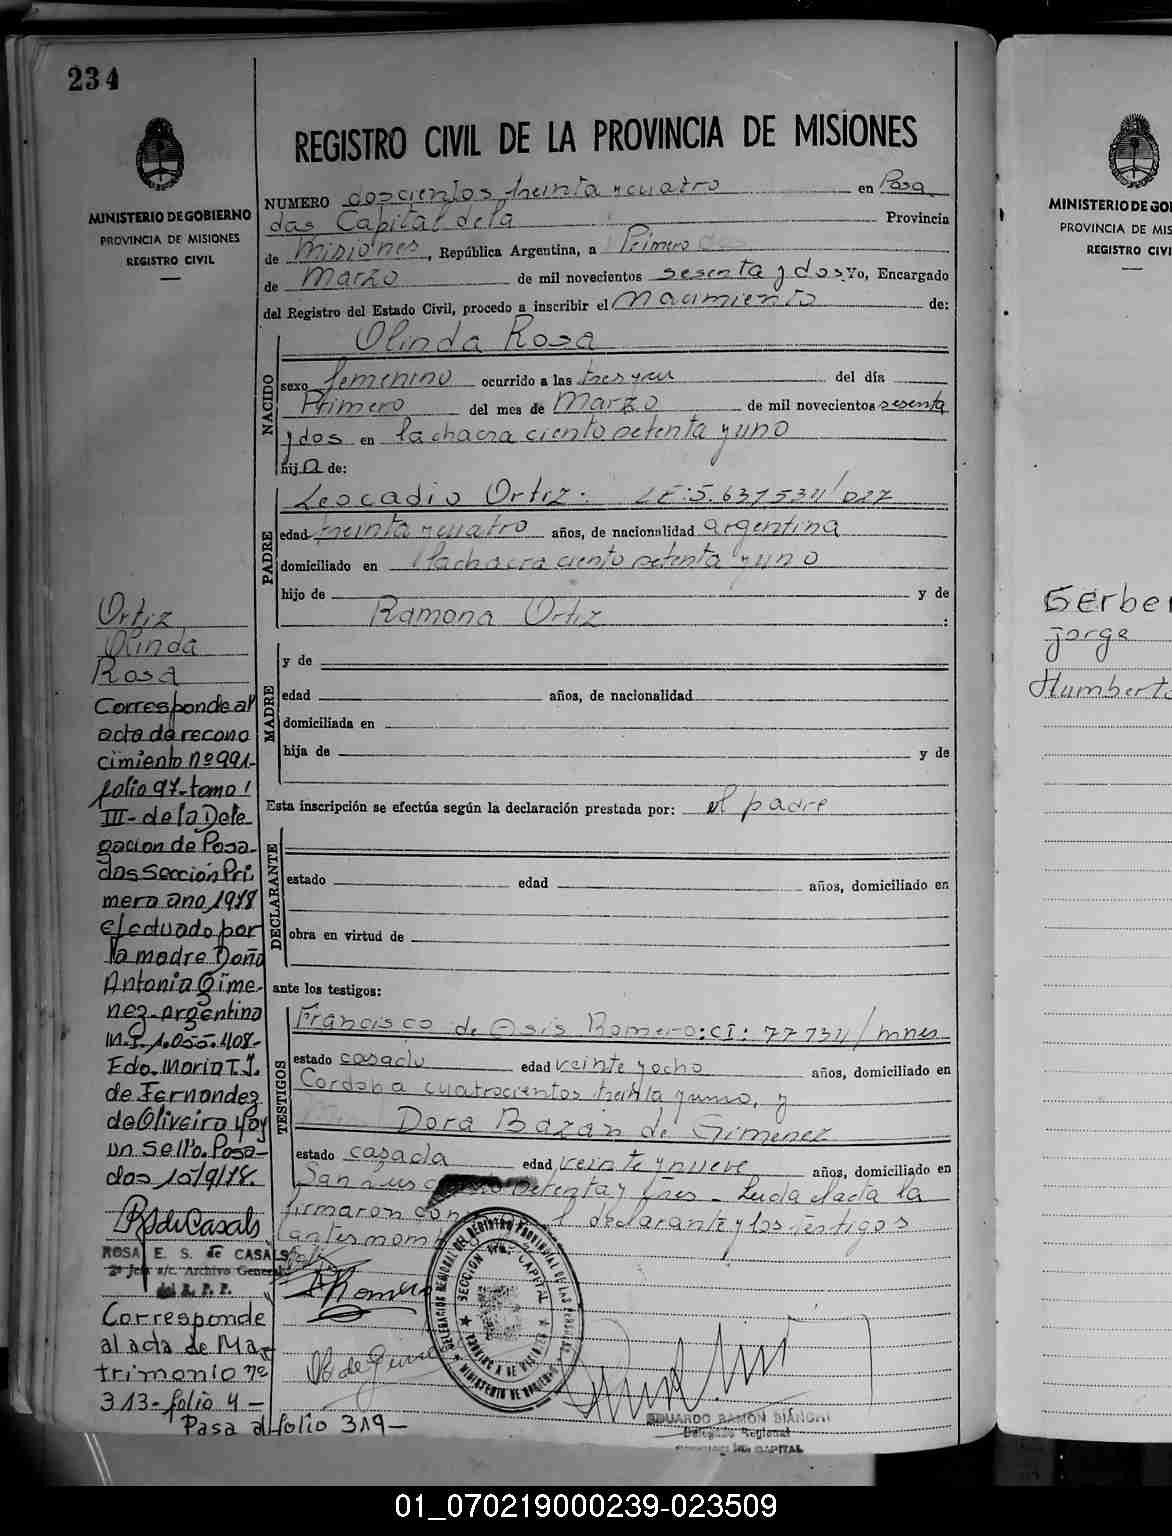 234
MINISTERIO DE GOBIERNO
PROVINCIA DE MISIONES
REGISTRO CIVIL
REGISTRO CIVIL DE LA PROVINCIA DE MISIONES
NUMERO doscientos treinta y cuatro en Posa
das Capital de la Provincia
de Misiones, República Argentina, a Primero
de Marzo de mil novecientos sesenta y dos. Yo, Encargado
del Registro del Estado Civil, procedo a inscribir el Nacimiento de:
Olinda Rosa
NACIDO
sexo femenino ocurrido a las tres y del día
Primero del mes de Marzo de mil novecientos sesenta
y dos en la chacra ciento setenta y uno
hija de:
PADRE
Leocadio Ortiz. LE: 5.637534/027
edad treinta y cuatro años, de nacionalidad argentina
domiciliado en la chacra ciento setenta y uno
hijo de y de
Ramona Ortiz :
MADRE
y de
edad años, de nacionalidad
domiciliada en
hija de y de
Esta inscripción se efectúa según la declaración prestada por: el padre
DECLARANTE
estado edad años, domiciliado en
obra en virtud de
ante los testigos:
TESTIGOS
Francisco de Asis Romero: CI: 77734/mnes
estado casado edad veinte y ocho años, domiciliado en
Cordoba cuatrocientos treinta y uno, y
Dora Bazán de Gimenez
estado casada edad veinte y nueve años, domiciliado en
San Luis setenta y tres - Leida el acta la
firmaron con declarante y los testigos
antes nom
Ortiz
Olinda
Rosa
Corresponde al
acta de recono
cimiento nº 991-
folio 97-tomo
III- de la Dele
gacion de Posa-
das Sección Pri
mera ano 1978
efectuado por
la madre Doña
Antonia Gime-
nez-argentina
M.I. 1.055.408-
Fdo. Maria T.J.
de Fernandez
de Oliveira Hay
un sello. Posa-
das 15/9/78.
ROSA E. S. de CASALS
2ª Jefa a/c. Archivo General
del R. P. P.
Corresponde
al acta de Ma
trimonio nº
313-folio 4-
Pasa al folio 319-
DELEGACION REGIONAL DEL REGISTRO PROVINCIAL DE LAS PERSONAS
MINISTERIO DE GOBIERNO
EDUARDO RAMON BIANCHI
Delegado Regional
CAPITAL
MINISTERIO DE GO
PROVINCIA DE MIS
REGISTRO CIVI
Gerber
Jorge
Humberto
01_070219000239-023509